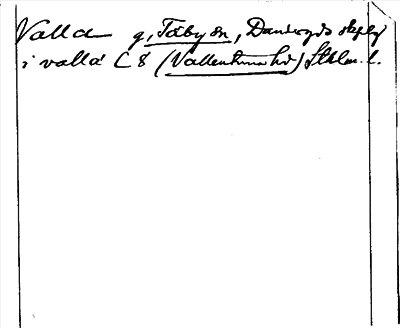 Valla g, Täby sn, Danderyds skplg
i valla C 8 (Vallentuna hd) Sthlm. l.